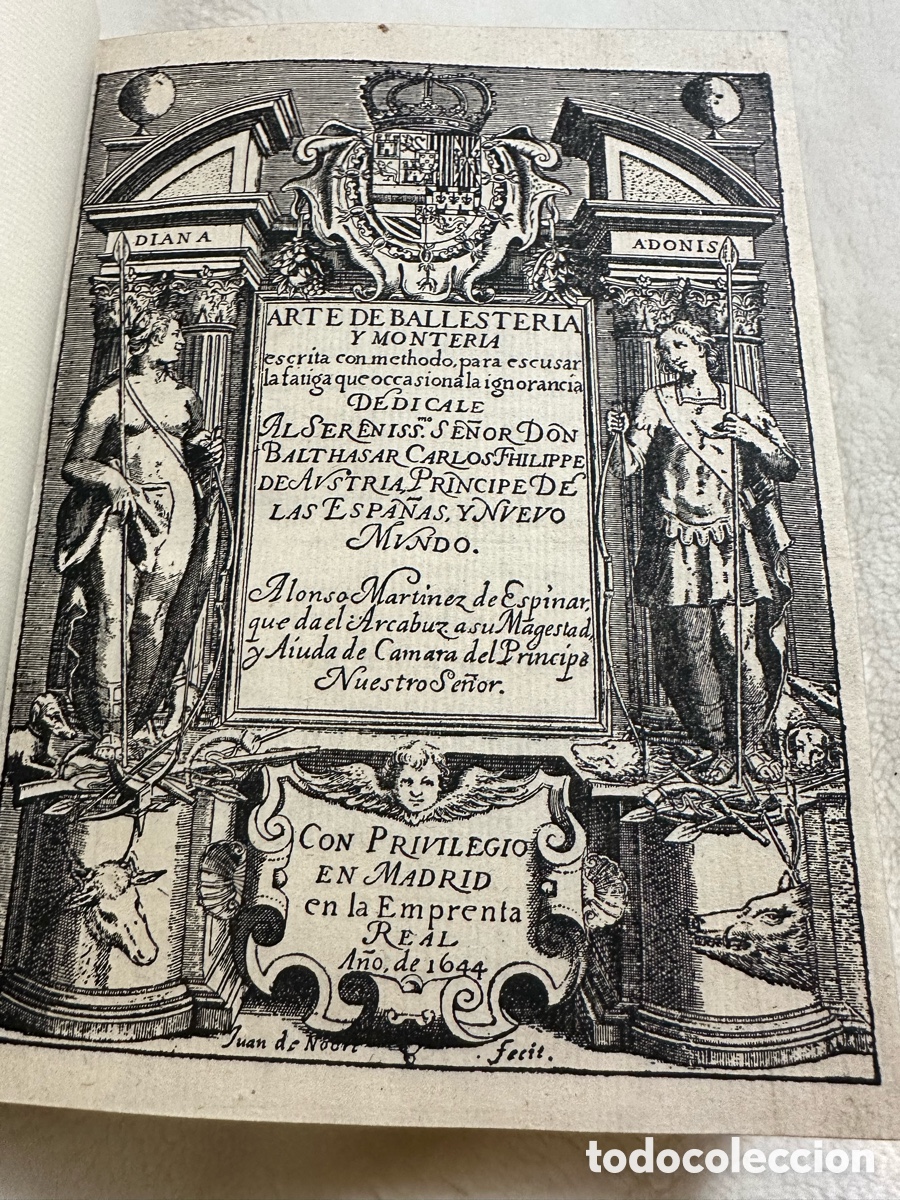 DIANA
ADONIS
ARTE DE BALLESTERIA
Y MONTERIA
escrita con methodo, para escusar
la fatiga que occasiona la ignorancia
DEDICALE
AL SERENISS.mo SEÑOR DON
BALTHASAR CARLOS PHILIPPE
DE AVSTRIA, PRINCIPE DE
LAS ESPAÑAS, Y NVEVO
MVNDO.
Alonso Martinez de Espinar,
que da el Arcabuz a su Magestad,
y Aiuda de Camara del Principe
Nuestro Señor.
CON PRIVILEGIO
EN MADRID
en la Emprenta
REAL
Año, de 1644
Juan de Noort fecit.
todocoleccion